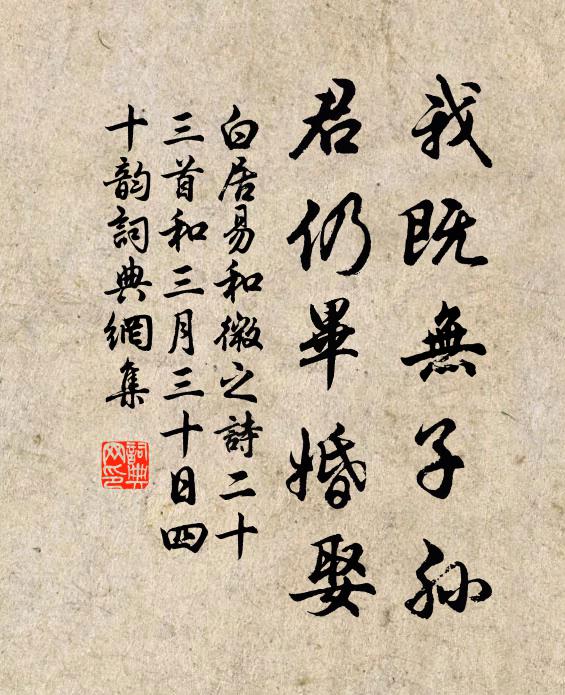 我既無子孫
君仍畢婚娶
白居易和微之詩二十
三首和三月三十日四
十韵詞典網集
詞典網印